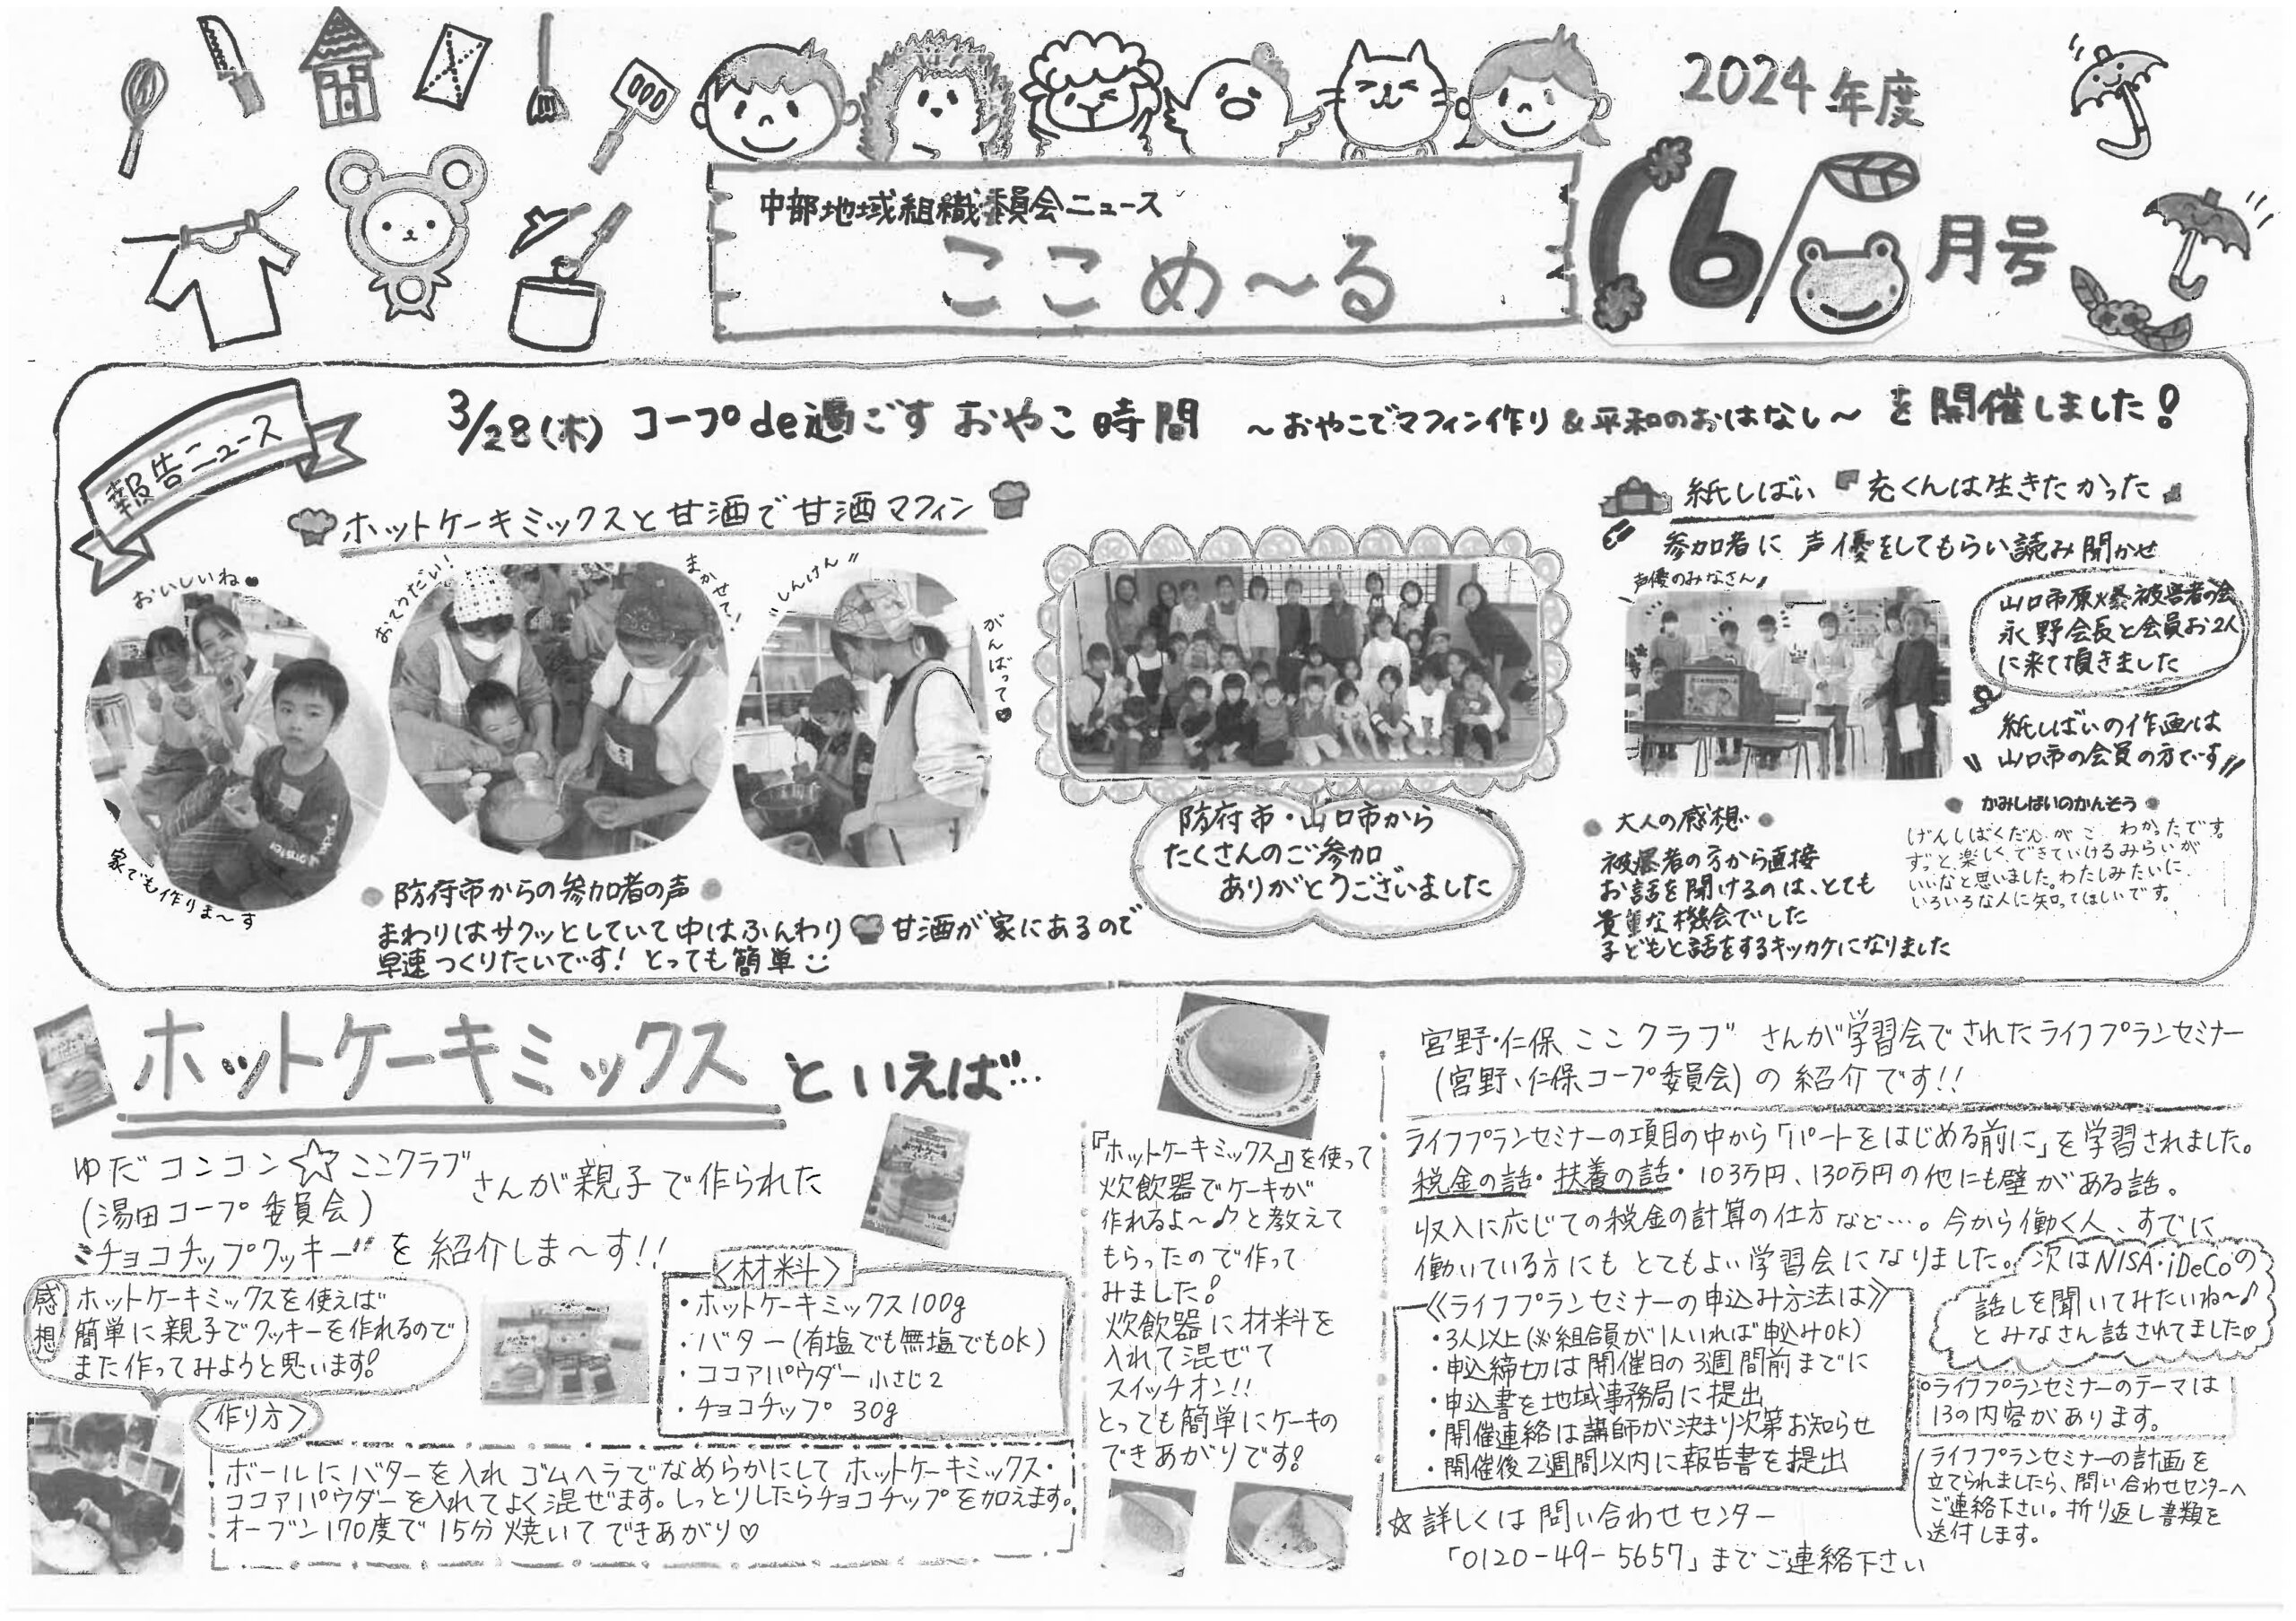 2024年度
6月号
中部地域組織委員会ニュース
ここめ～る
報告ニュース
3/28(木) コープde過ごす おやこ時間 ～おやこでマフィン作り&平和のおはなし～ を開催しました!
ホットケーキミックスと甘酒で甘酒マフィン
おいしいね
おてつだい!
まかせて!
"しんけん"
がんばって
家でも作りま～す
防府市からの参加者の声
まわりはサクッとしていて中はふんわり 甘酒が家にあるので
早速つくりたいです! とっても簡単
防府市・山口市から
たくさんのご参加
ありがとうございました
紙しばい『充くんは生きたかった』
参加者に声優をしてもらい読み聞かせ
声優のみなさん
山口市原爆被害者の会
永野会長と会員お2人
に来て頂きました
紙しばいの作画は
山口市の会員の方です
大人の感想
被爆者の方から直接
お話を聞けるのは、とても
貴重な機会でした
子どもと話をするキッカケになりました
かみしばいのかんそう
げんしばくだんが わかったです。
ずっと楽しくできていけるみらいが
いいなと思いました。わたしみたいに
いろいろな人に知ってほしいです。
ホットケーキミックスといえば…
ゆだコンコン☆ここクラブ
(湯田コープ委員会)
さんが親子で作られた
"チョコチップクッキー"を紹介しま～す!!
感想
ホットケーキミックスを使えば
簡単に親子でクッキーを作れるので
また作ってみようと思います!
<材料>
・ホットケーキミックス100g
・バター(有塩でも無塩でもOK)
・ココアパウダー 小さじ2
・チョコチップ 30g
<作り方>
ボールにバターを入れゴムヘラでなめらかにしてホットケーキミックス・
ココアパウダーを入れてよく混ぜます。しっとりしたらチョコチップを加えます。
オーブン170度で15分焼いてできあがり♡
『ホットケーキミックス』を使って
炊飯器でケーキが
作れるよ～♪と教えて
もらったので作って
みました!
炊飯器に材料を
入れて混ぜて
スイッチオン!!
とっても簡単にケーキの
できあがりです!
宮野・仁保ここクラブ さんが学習会でされたライフプランセミナー
(宮野、仁保コープ委員会)の紹介です!!
ライフプランセミナーの項目の中から「パートをはじめる前に」を学習されました。
税金の話・扶養の話・103万円、130万円の他にも壁がある話。
収入に応じての税金の計算の仕方など…。今から働く人、すでに
働いている方にもとてもよい学習会になりました。
次はNISA・iDeCoの
話しを聞いてみたいね～♪
とみなさん話されてました♡
《ライフプランセミナーの申込み方法は》
・3人以上(※組合員が1人いれば申込みOK)
・申込締切は開催日の3週間前までに
・申込書を地域事務局に提出
・開催連絡は講師が決まり次第お知らせ
・開催後2週間以内に報告書を提出
○ライフプランセミナーのテーマは
13の内容があります。
ライフプランセミナーの計画を
立てられましたら、問い合わせセンターへ
ご連絡下さい。折り返し書類を
送付します。
☆詳しくは問い合わせセンター
「0120-49-5657」までご連絡下さい